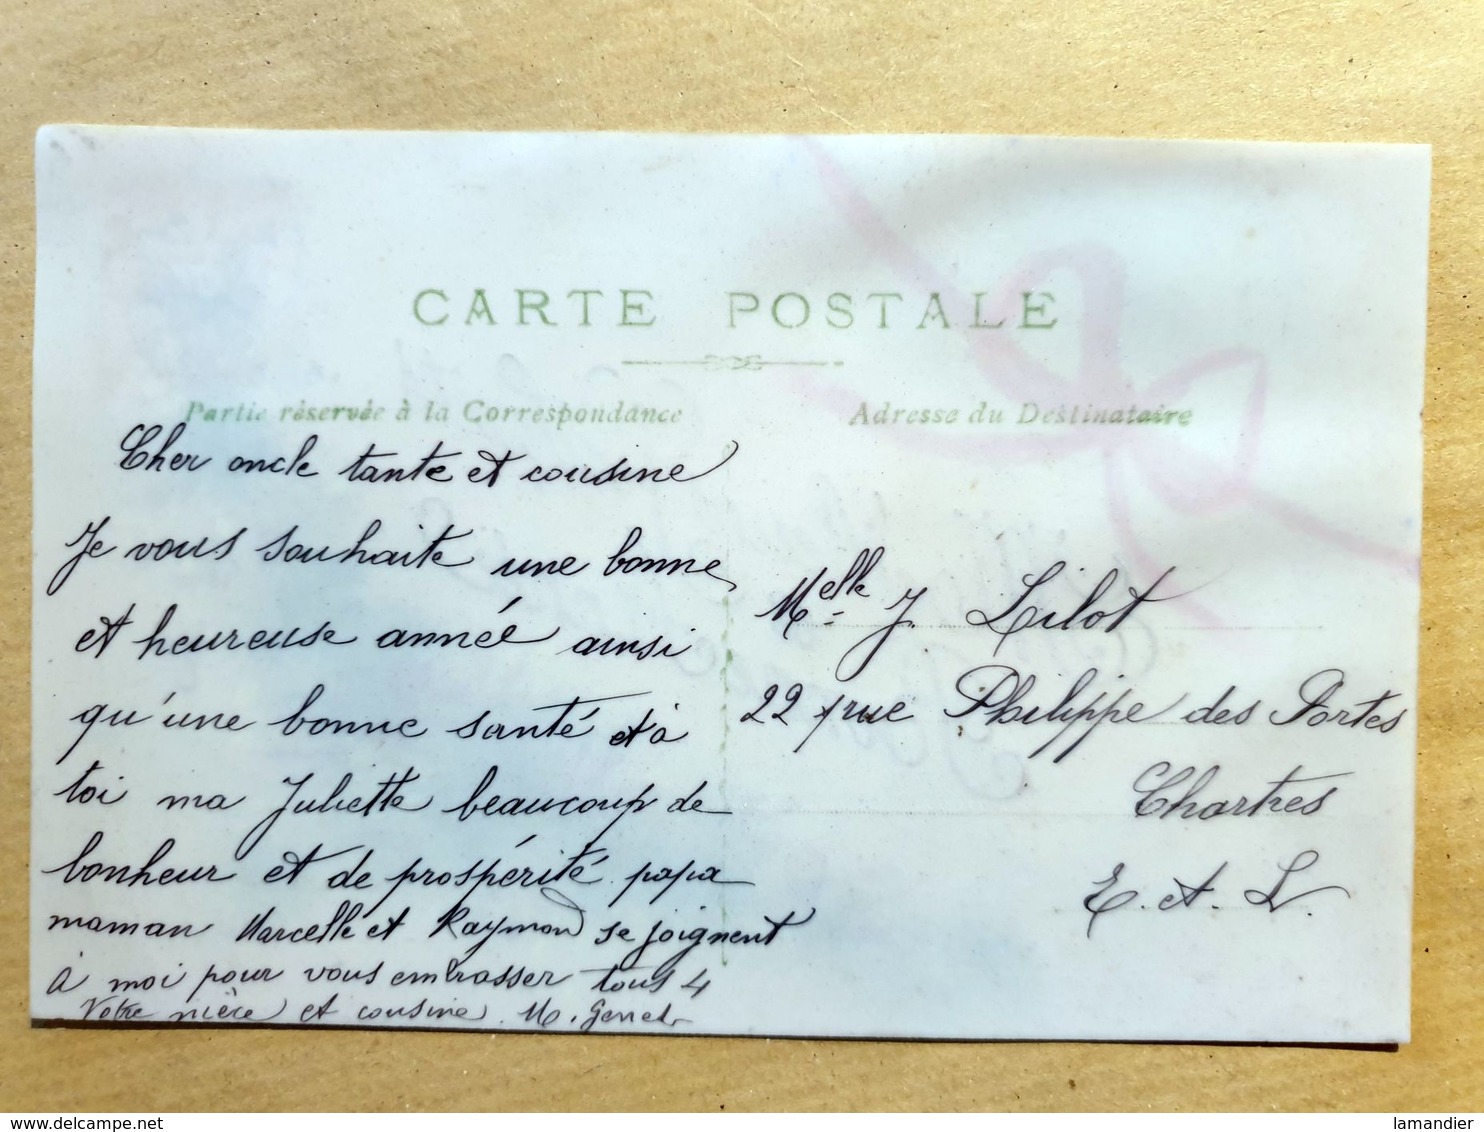 CARTE POSTALE
Partie réservée à la Correspondance
Adresse du Destinataire
Cher oncle tante et cousine
Je vous souhaite une bonne
et heureuse année ainsi
qu'une bonne santé et à
toi ma Juliette beaucoup de
bonheur et de prospérité. papa
maman Marcelle et Raymond se joignent
à moi pour vous embrasser tous 4
Votre nièce et cousine. M.
Melle J. Lilot
22 rue Philippe des Portes
Chartres
E. et. L.
delcampe.net
lamandier